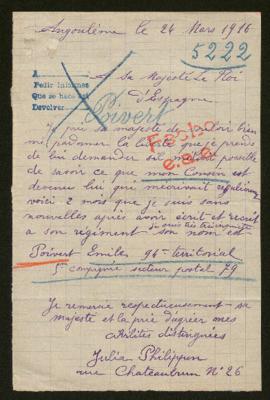 Angoulême le 24 Mars 1916
5222
A
Pedir informes
Que se hace
Devolver
A sa Majesté Le Roi
d'Espagne
Poivert
Je prie sa majesté de vouloir bien
me pardonner la liberté que je prends
de lui demander s'il m'est possible
de savoir ce que mon Cousin est
devenu lui qui m'écrivait régulièrement
voici 2 mois que je suis sans
nouvelles après avoir écrit et récrit
je suis très tourmentée
a son régiment - son nom est
Poivert Emile 94e territorial
5e compagnie secteur postal 79
Je remercie respectueusement sa
majesté et la prie d'agréer mes
distinguées
Julia Philippon
rue Chateaubrun N° 26